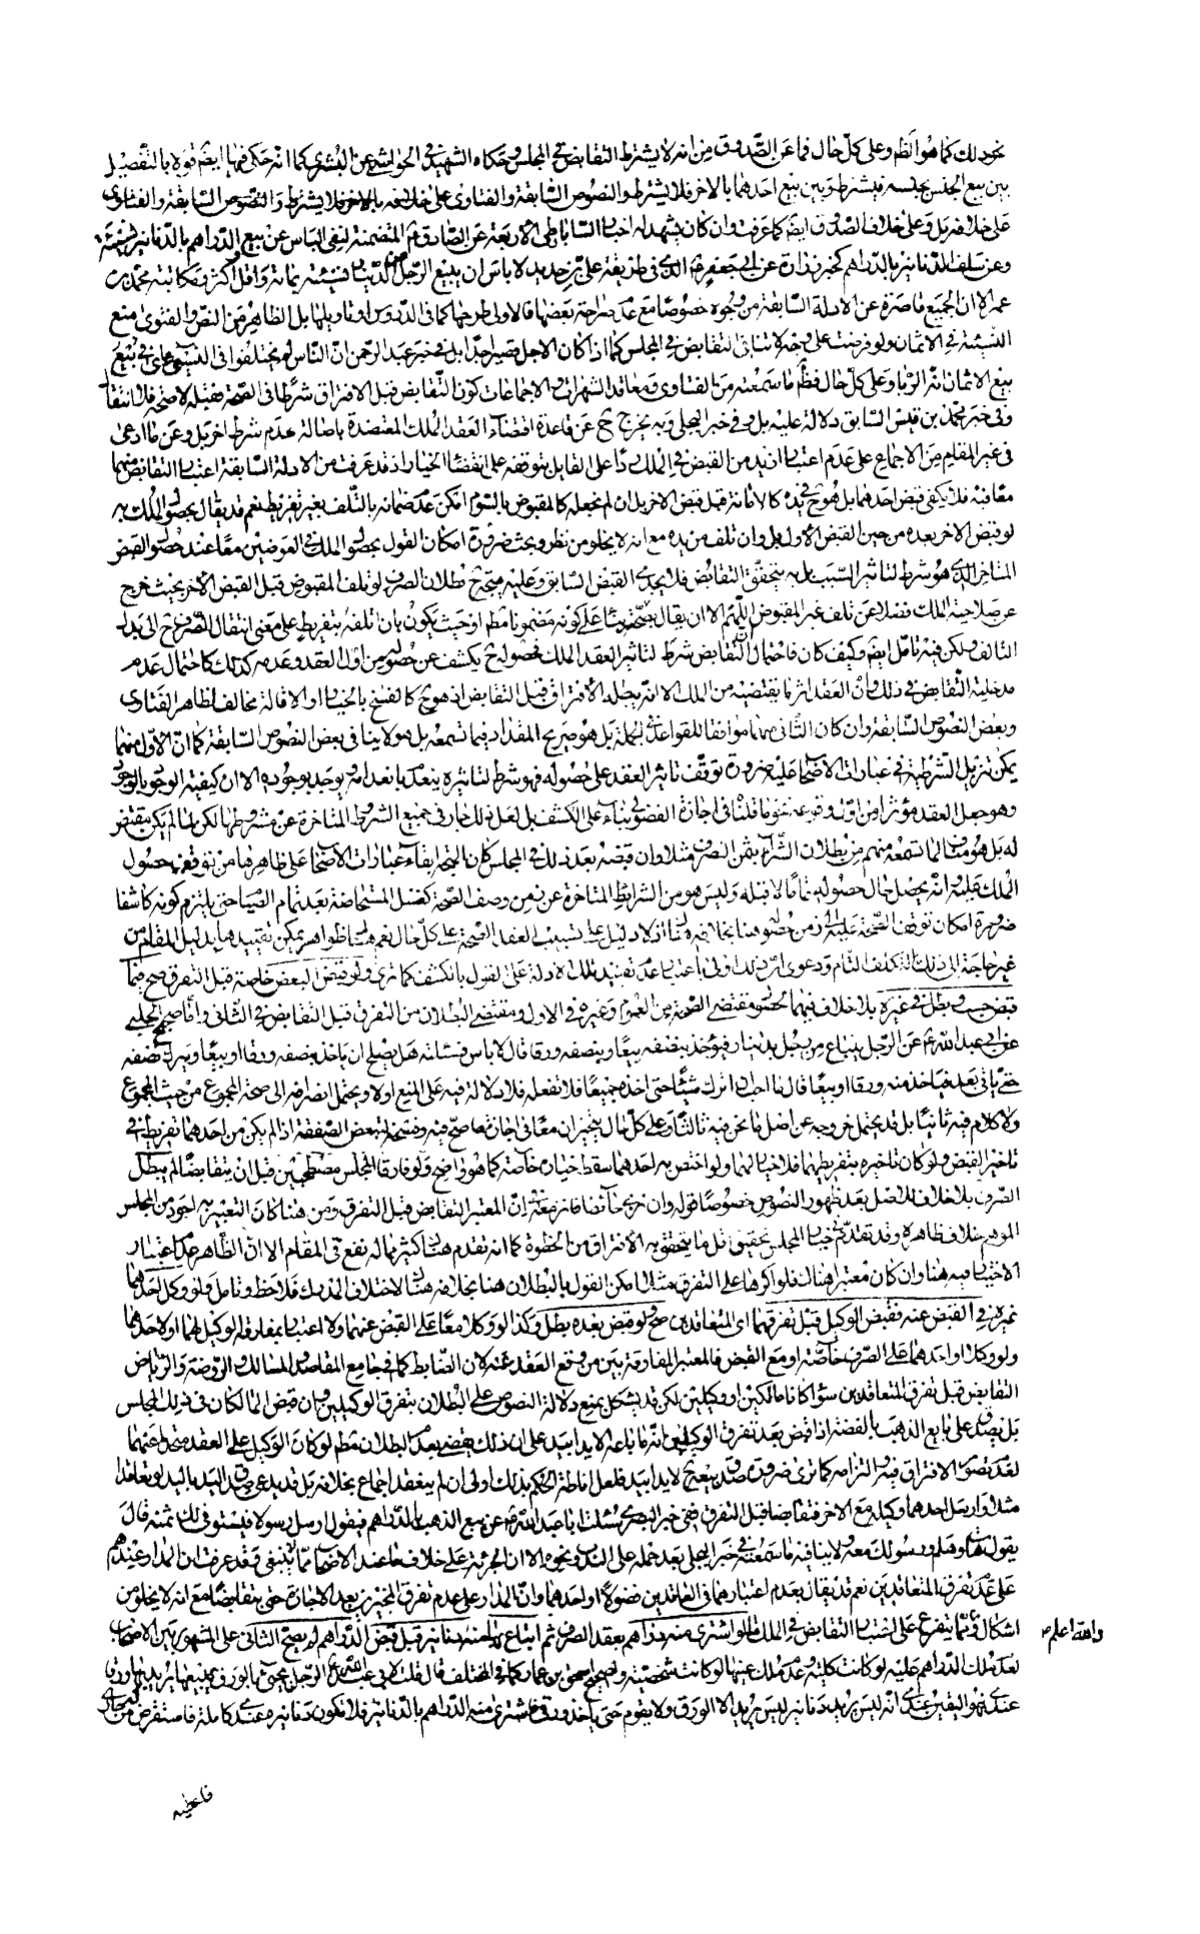 نحو ذلك كما هو الظ وعلى كل حال فما عن الصدوق من انه لا يشترط التقابض في المجلس وحكاه الشهيد في الحواشي عن البشرى كما انه حكى فيها ايضم قوله بالتفصيل
بين بيع الجنس بجنسه فيشترط وبين بيع احدهما بالاخر فلا يشترط والنصوص السابقة والفتاوى على خلافه بالاخر فلا يشترط والنصوص السابقة والفتاوى
على خلافه بل وعلى خلاف الصدوق ايضم كما عرفت وان كان يشهد له اخبار الساباطي الاربعة عن الصادق ع المتضمنة لنفي الباس عن بيع الدراهم بالدنانير نسيئة
وعن سلف الدنانير بالدراهم كخبر زرارة عن ابي جعفر ع الذي في طريقه علي بن حديد لا باس ان يبيع الرجل الدينار نسيئة بمائة واقل واكثر ومكاتبة محمد بن
عمر الا ان الجميع قاصرة عن الادلة السابقة من وجوه خصوصا مع عدم صراحة بعضها فالاولى طرحها كما في الدروس او تاويلها بل الظاهر من النص والفتوى منع
النسيئة في الاثمان ولو فرضت على وجه لا تنافي التقابض في المجلس كما اذا كان الاجل قصيرا جدا بل في خبر عبد الرحمن ان الناس لم يختلفوا في النسئ
بيع الاثمان انه الربا وعلى كل حال فظم ما سمعته من الفتاوى ومعاقد الشهرات والاجماعات كون التقابض قبل الافتراق شرطا في الصحة فقبله لا صحة فلا انتقال
وفي خبر محمد بن قيس السابق دلالة عليه بل وفي خبر البجلي وبه يخرج ح عن قاعدة اقتضاء العقد الملك المعتضدة باصالة عدم شرط اخر بل وعن ما ادعى
في غير المقام من الاجماع على عدم اعتبار ازيد من القبض في الملك ردا على القايل بتوقفه على انقضاء الخيار اذ قد عرفت من الادلة السابقة اعتبار التقابض منهما
معا فيه فلا يكفي قبض احدهما بل هو ح في يده كالامانة قبل قبض الاخر بل ان لم نجعله كالمقبوض بالسوم امكن عدم ضمانه بالتلف بغير تفريط نعم قد يقال بحصول الملك به
لو قبض الاخر بعده من حين القبض الاول بل وان تلف من يده مع انه لا يخلو من نظر وبحث ضرورة امكان القول بحصول الملك في العوضين معا عند حصول القبض
المتاخر الذي هو شرط لتاثير السبب بل به يتحقق التقابض فلا يجدي القبض السابق وعليه فيتجه ح بطلان الصرف لو تلف المقبوض قبل القبض الاخر بحيث خرج
عن صلاحية الملك فضلا عن تلف غير المقبوض اللهم الا ان يقال بصحته بناء على كونه مضمونا مطم او حيث يكون بان اتلفه بتفريط على معنى انتقال الصرف ح الى بدل
التالف ولكن فيه تامل ايضم وكيف كان فاحتمال ان التقابض شرط لتاثير العقد الملك فحصوله ح يكشف عن حصوله من اول العقد وعدمه كذلك كاحتمال عدم
مدخلية التقابض في ذلك وان العقد اثر ما يقتضيه من الملك الا انه يبطله الافتراق قبل التقابض اذ هو ح كالفسخ بالخيار او الاقالة مخالف لظاهر الفتاوى
وبعض النصوص السابقة وان كان الثاني منهما موافقا للقواعد في الجملة بل هو صريح المقداد فيما تسمعه بل هو لا ينافي بعض النصوص السابقة كما ان الاول منهما
يمكن تنزيل الشرطية في عبارات الاصحاب عليه ضرورة توقف تاثير العقد على حصوله فهو شرط لتاثيره ينعدم بانعدامه ويوجد بوجوده الا ان كيفية الوجود بالوجود
وهو جعل العقد مؤثرا من اول وقوعه نحو ما قلناه في اجازة الفضولي بناء على الكشف بل لعل ذلك جار في جميع الشروط المتاخرة عن مشروطها لكن لما لم يكن مقتض
له بل هو مناف لما تسمعه منهم من بطلان الشراء بثمن الصرف مثلا وان قبضه بعد ذلك في المجلس كان المتجه ابقاء عبارات الاصحاب على ظاهرها من توقف حصول
الملك عليه وانه يحصل حال حصوله تاما لا قبله وليس هو من الشرائط المتاخرة عن زمن وصف الصحة كغسل المستحاضة بعد تمام الصيام حتى يلتزم كونه كاشفا
ضرورة امكان توقف الصحة عليه الى زمن حصوله هنا بخلافه ثمة اذ لا دليل على تسبيب العقد الصحة على كل حال نعم هناك ظواهر يمكن تقييدها بدليل المقام من
غير حاجة الى ذلك التكلف التام ودعوى ان ذلك اولى باعتبار عدم تقييد تلك الادلة على القول بالكشف كما ترى ولو قبض البعض خاصة قبل التفرق صح فيما
قبض حسب وبطل في غيره بلا خلاف فيهما لحصول مقتضى الصحة من العموم وغيره في الاول ومقتضى البطلان من التفرق قبل التقابض في الثاني واما صحيح الحلبي
عن ابي عبد الله ع عن الرجل يبتاع من رجل بدينار فيؤخذ بنصفه بيعا وبنصفه ورقا قال لا باس فسئلته هل يصلح ان ياخذ بنصفه ورقا او بيعا ويترك نصفه
حتى ياتي بعد فياخذ منه ورقا او بيعا قال ما احب ان اترك شيئا حتى اخذه جميعا فلا تفعله فلا دلالة فيه على المنع اولا ويحتمل انصرافه الى صحة المجموع من حيث المجموع
ولا كلام فيه ثانيا بل قد يحتمل خروجه عن اصل ما نحن فيه ثالثا وعلى كل حال يتخيران معا في اجازة ما صح فيه وفسخه لتبعض الصفقة اذا لم يكن من احدهما تفريط في
تاخير القبض ولو كان تاخيره بتفريطهما فلا خيار لهما ولو اختص به احدهما سقط خياره خاصة كما هو واضح ولو فارقا المجلس مصطحبين قبل ان يتقابضا لم يبطل
الصرف بلا خلاف للاصل بعد ظهور النصوص خصوصا قوله وان نزى حائطا فانز معه في ان المعتبر التقابض قبل التفرق ومن هنا كان التعبير به اجود من المجلس
الموهم خلاف ظاهره وقد تقدم في خيار المجلس تحقيق اقل ما يتحقق به الافتراق من الخطوة كما انه تقدم هناك كثير مما له نفع في المقام الا ان الظاهر عدم اعتبار
الاختيار فيه هنا وان كان معتبرا هناك فلو اكرها على التفرق مثلا امكن القول بالبطلان هنا بخلافه هناك لاختلاف المدرك فلاحظ وتامل ولو وكل احدهما
غيره في القبض عنه فقبض الوكيل قبل تفرقهما اى المتعاقدين صح ولو قبض بعده بطل وكذا لو وكلا معا على القبض عنهما ولا اعتبار بمفارقة الوكيل لهما او لاحدهما
ولو وكلا او احدهما على الصرف خاصة او مع القبض فالمعتبر المفارقة بين من وقع العقد عنه لان الضابط كما في جامع المقاصد والمسالك والروضة والرياض
التقابض قبل تفرق المتعاقدين سواء كانا مالكين او وكيلين لكن قد يشكل بمنع دلالة النصوص على البطلان بتفرق الوكيلين وبان قبض المالكان في ذلك المجلس
بل يصدق على بايع الذهب بالفضة اذا قبض بعد تفرق الوكيلين انه ما باعه الا يدا بيد على ان ذلك يقضى بعدم البطلان مطم لو كان الوكيل على العقد متحدا عنهما
لعدم تصور الافتراق فيه والتزامه كما ترى ضرورة صدق بيعه ح لا يدا بيد فلعل اناطة الحكم بذلك اولى ان لم ينعقد اجماع بخلافه بل قد يدعى صدق اليد باليد لو تعاقدا
مثلا وارسل احدهما وكيله مع الاخر فتقابضا قبل التفرق ففي خبر البصري سئلت ابا عبد الله ع عن بيع الذهب بالدراهم فيقول ارسل رسولا فيستوفي لك ثمنه قال
يقول هات وهلم ورسولك معه ولا ينافيه ما سمعته في خبر البجلي بعد حمله على الندب ونحوه الا ان الجرئة على خلاف ما عند الاصحاب مما لا ينبغي وقد عرفت ان المدار عندهم
على عدم تفرق المتعاقدين نعم قد يقال بعدم اعتبارهما في العاقدين فضولا او احدهما وان المدار على عدم تفرق المجيزين بعد الاجازة حتى يتقابضا مع انه لا يخلو من
اشكال ومما يتفرع على اعتبار التقابض في الملك ما لو اشترى منه دراهم بعقد الصرف ثم ابتاع بها منه دنانير قبل قبض الدراهم لم يصح الثاني على المشهور بين الاصحاب
لعدم ملك الدراهم عليه لو كانت كلية وعدم ملك عينها لو كانت شخصية ولصحيح اسحق بن عمار كما في المختلف قال قلت لابي عبد الله ع الرجل يجيئ بالورق يبيعها يريد بها ورقا
عندي فهو اليقين عندي انه ليس يريد دنانير ليس يريد الا الورق ولا يقوم حتى ياخذ ورقي فاشترى منه الدراهم بالدنانير فلا تكون دنانيره عندي كاملة فاستقرض من جاري
والله اعلم
فاعطيه